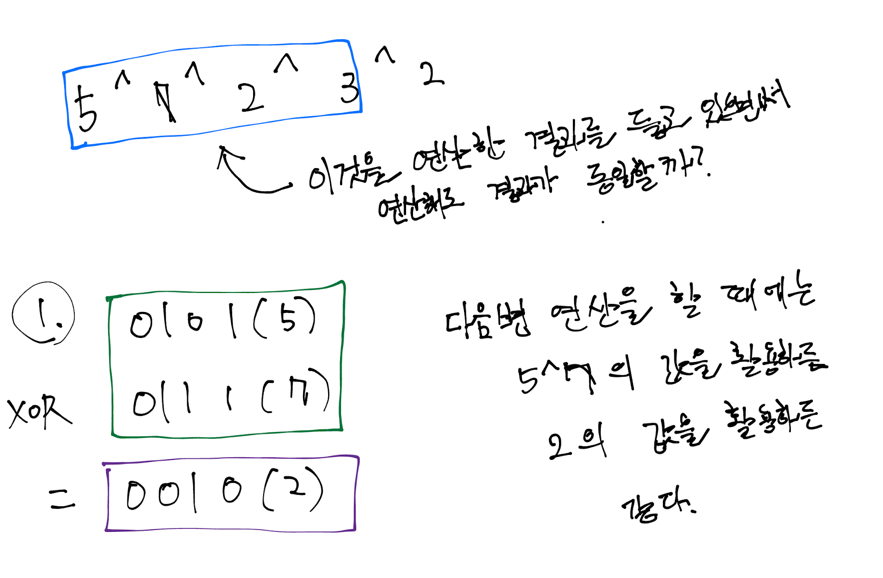 5 ^ 7 ^ 2 ^ 3 ^ 2
이것을 연산한 결과를 들고 있으면서
연산해도 결과가 동일할까?
1.
0101(5)
XOR 0111(7)
= 0010(2)
다음번 연산을 할 때에는
5^7의 값을 활용하든
2의 값을 활용하든
같다.